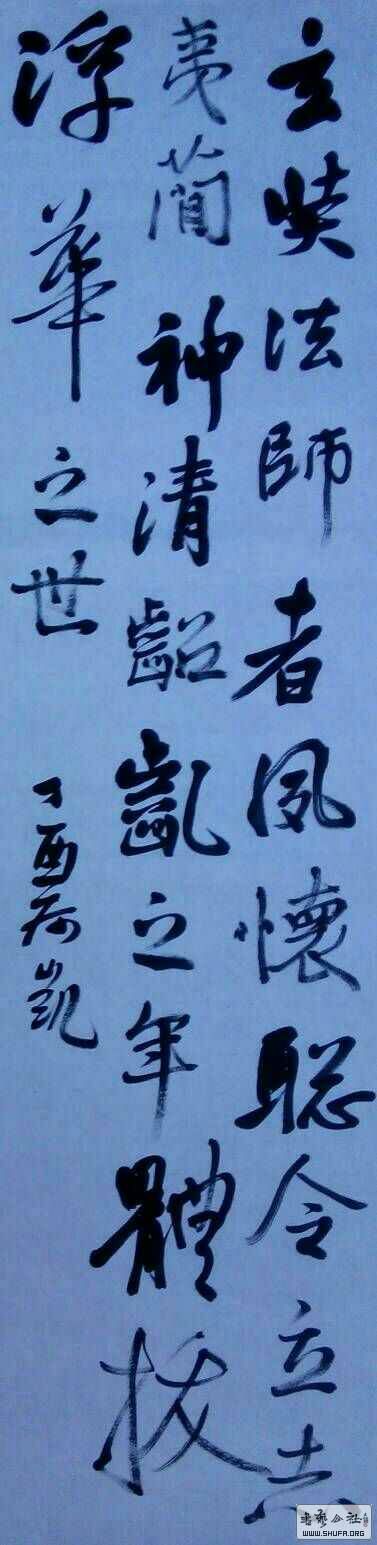 玄奘法師者夙懷聰令立志
夷簡神清齠齔之年體拔
浮華之世
丁酉 凱
WWW.SHUFA.ORG